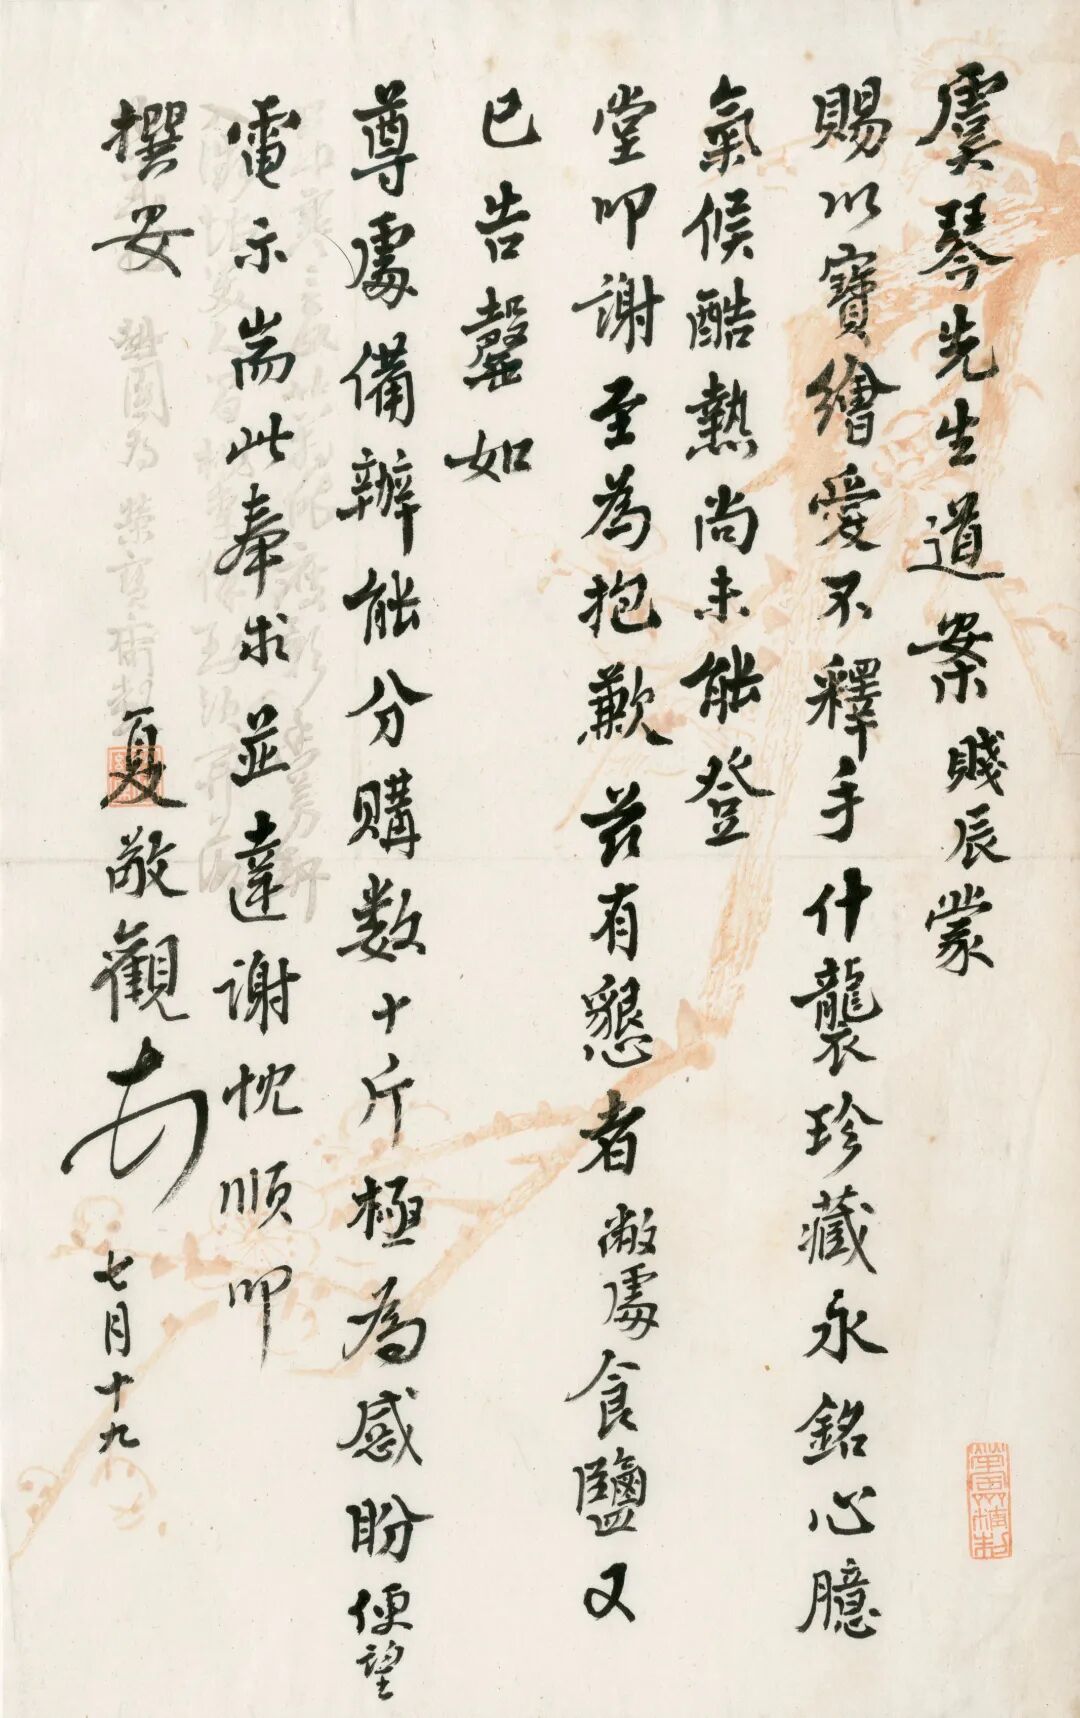 虞琴先生道案賤辰蒙
賜以寶繪愛不釋手什襲珍藏永銘心臆
氣候酷熱尚未能登
堂叩謝至為抱歉茲有懇者敝處食鹽又
已告罄如
尊處備辦能分購数十斤極為感盼便望
電示耑此奉求並達謝忱順叩
撰安 夏敬觀
七月十九